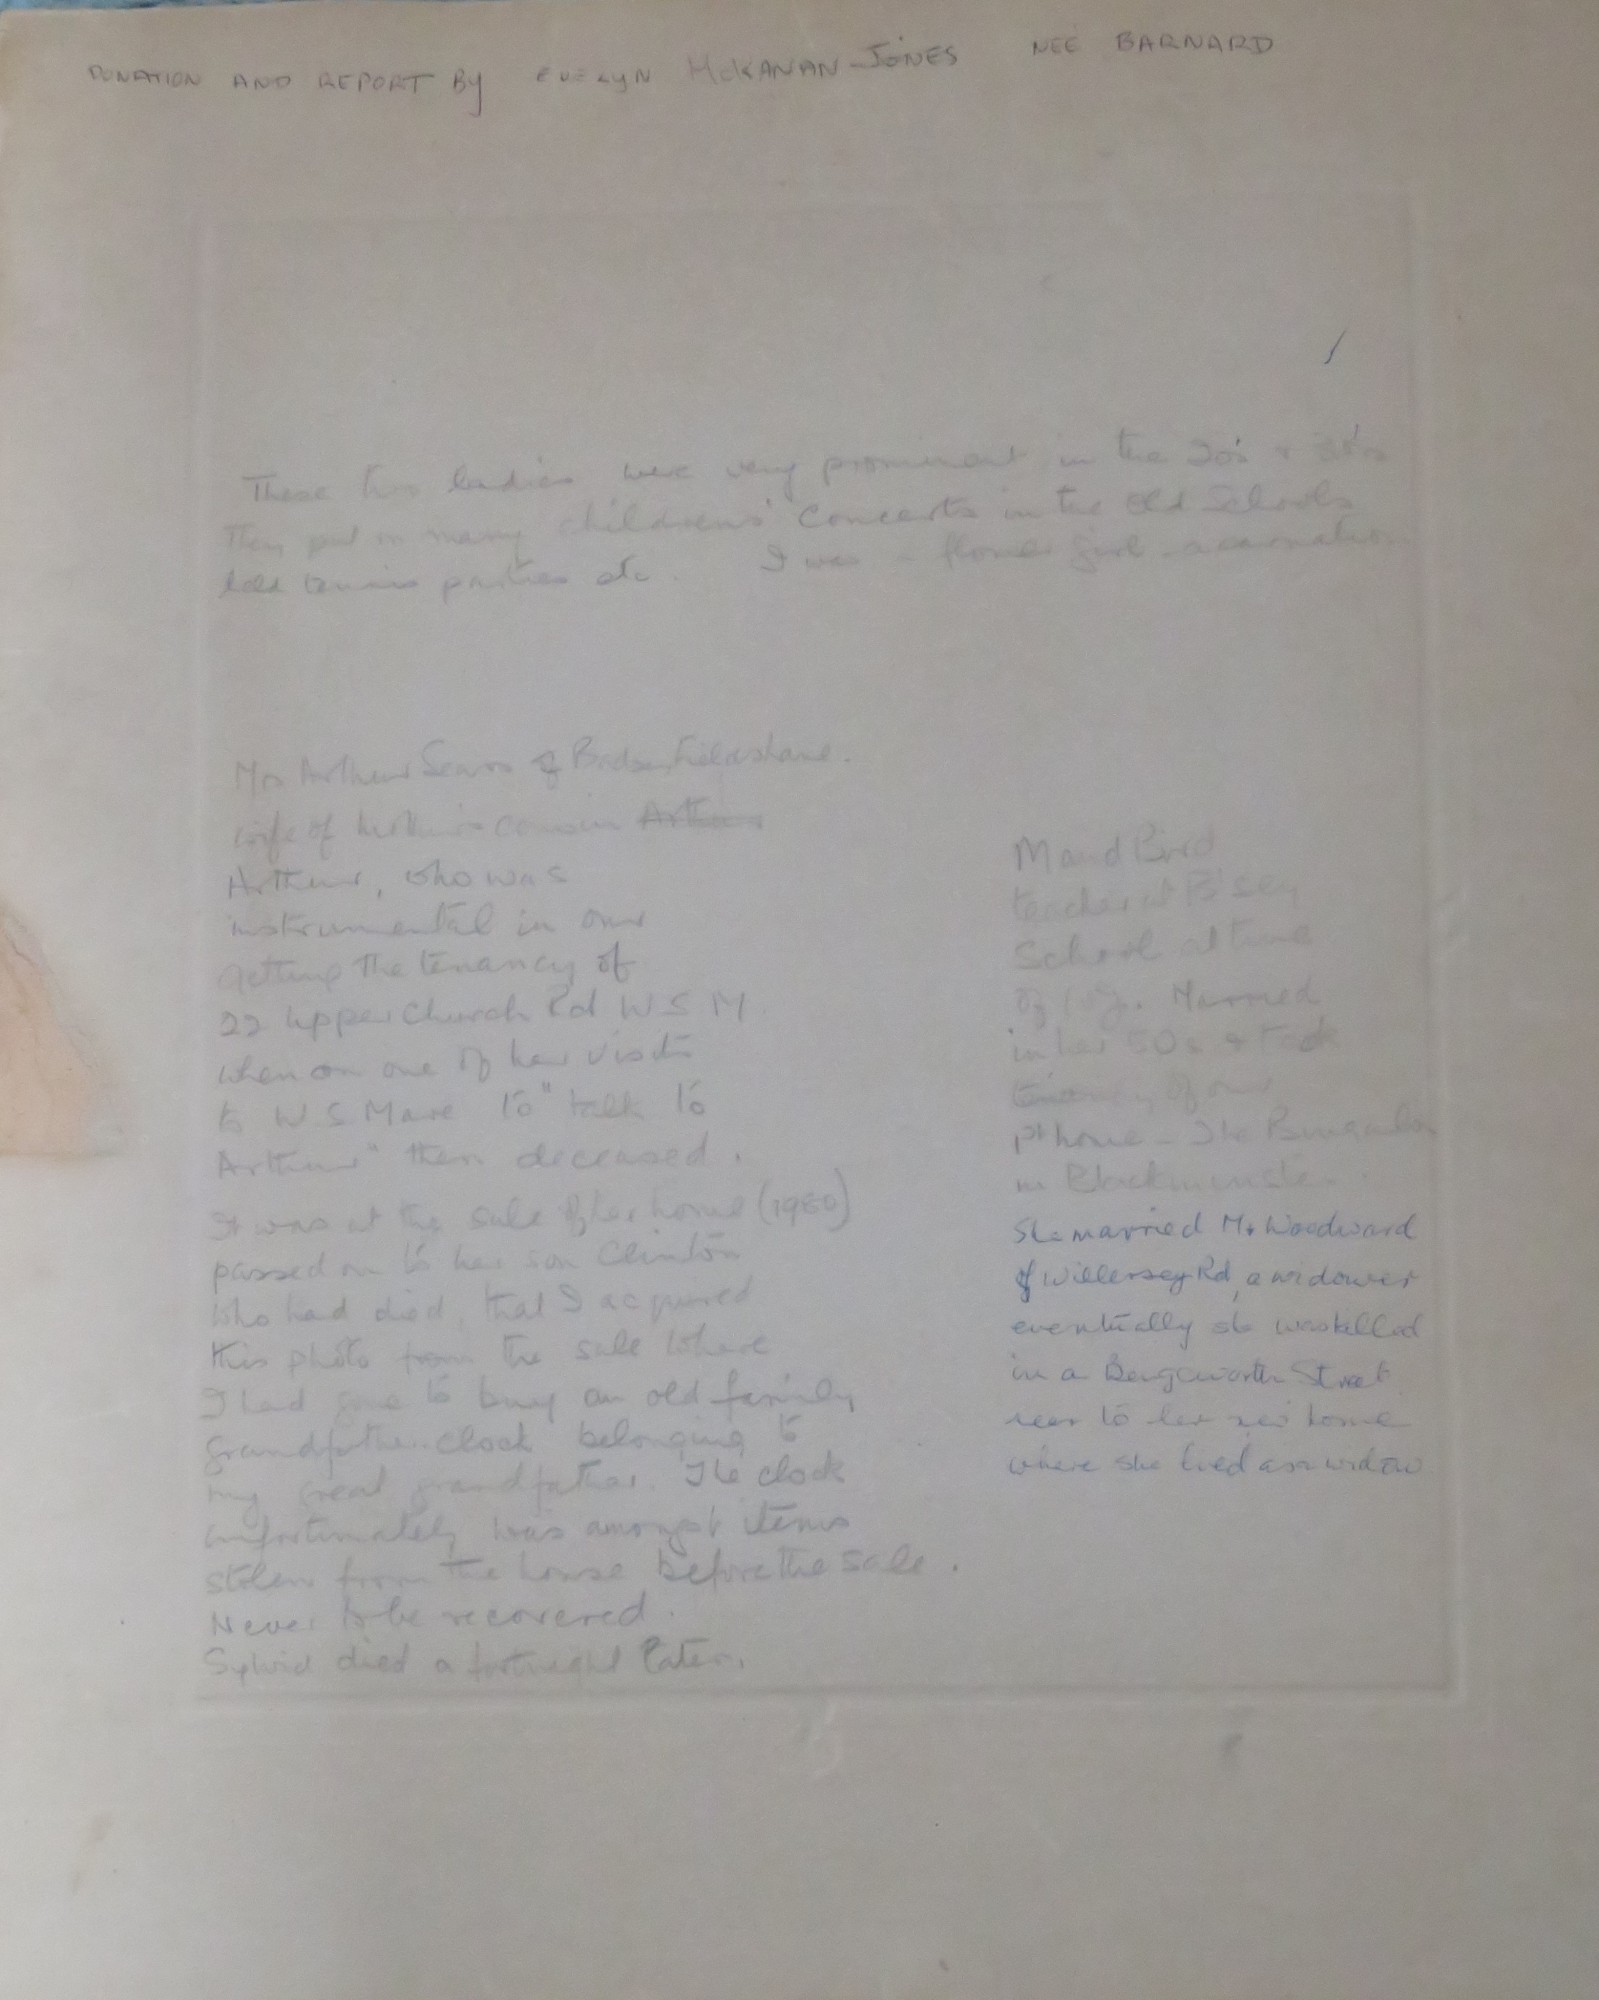 DONATION AND REPORT BY EVELYN McKANAN-JONES NEE BARNARD
These two ladies were very prominent in the 20's + 30's
They put on many childrens' Concerts in the Old Schools
held tennis parties etc. I was a flower girl - a carnation
Mrs Arthur Sears of Badsey Fields Lane.
wife of Mother's cousin Arthur
Arthur, who was
instrumental in our
getting the tenancy of
22 Upper Church Rd W S M
when on one of her visits
to W S Mare to "talk to
Arthur" then deceased.
It was at the sale of her home (1980)
passed on to her son Clinton
who had died, that I acquired
this photo from the sale where
I had gone to buy an old family
grandfather clock belonging to
my great grandfather. The clock
unfortunately was amongst items
stolen from the house before the sale.
Never to be recovered.
died a fortnight later.
Maud Bird
teacher at B'sey
School at time
of. Married
in her 50s + took
tenancy of our
1st home - The Bungalow
in Blackminster.
She married Mr Woodward
of Willersey Rd, a widower
eventually she was killed
in a Bengeworth Street
near to her new home
where she lived as a widow